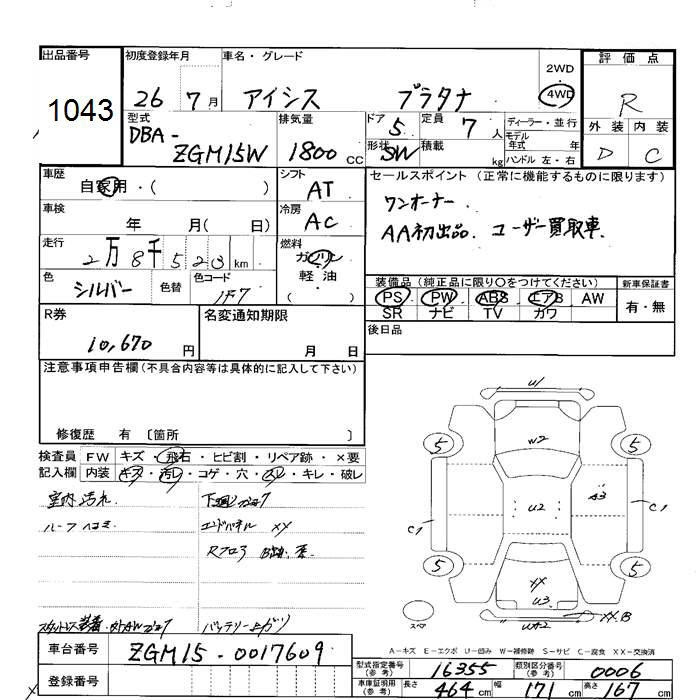 出品番号 初度登録年月 車名・グレード 2WD 評価点
1043 26 7月 アイシス プラタナ ・ 4WD R
型式 排気量 ドア 定員 ディーラー・並行 外装 内装
DBA- ZGM15W 1800 CC 5 7 人 モデル年式 年 D C
形状 SW 積載 kg ハンドル 左・右
車歴 シフト セールスポイント (正常に機能するものに限ります)
自家用・( ) AT ワンオーナー.
車検 冷房 AA初出品. ユーザー買取車.
年 月( 日) AC
走行 燃料
2万8千523km ガソリン
色 色替 色コード ・軽油
シルバー 1F7 ( )
装備品(純正品に限り〇をつけてください) 新車保証書
PS PW ABS エアB AW 有・無
SR ナビ TV カワ
R券 名変通知期限 後日品
10,670円 月 日
注意事項申告欄(不具合内容等は具体的に記入して下さい)
修復歴 有 〔箇所 〕
検査員 FW キズ・飛石・ヒビ割・リペア跡・×要
記入欄 内装 キズ・汚レ・コゲ・穴・スレ・キレ・破レ
室内汚れ.
ルーフ ヘコミ
エンドパネル XX
Rフロア
バッテリー上がり
U1
5 W2 5
C1 U2 A3 C1
5 XX 5
U3
スペア XX.B
A-キズ E-エクボ U-凹み W-補修跡 S-サビ C-腐食 XX-交換済
車台番号 ZGM15-0017609
登録番号
型式指定番号(参考) 16355 類別区分番号(参考) 0006
車庫証明用(参考) 長さ 464cm 幅 171cm 高さ 167cm